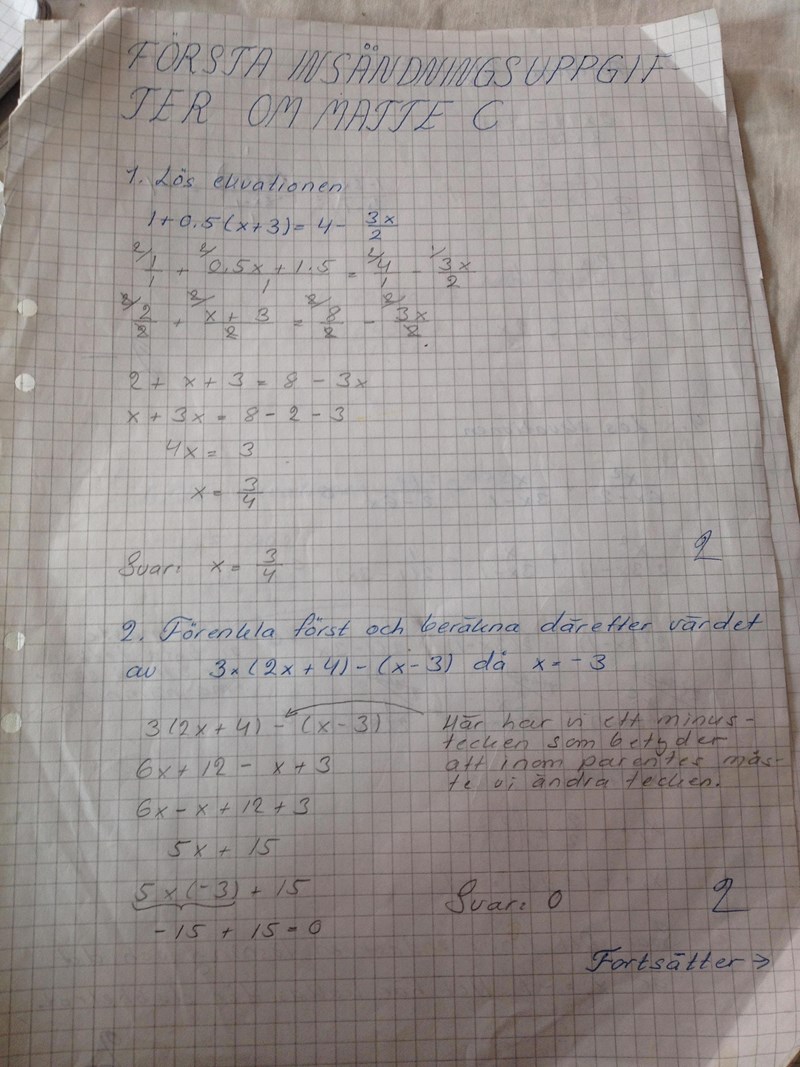 FÖRSTA INSÄNDNINGSUPPGIF-
TER OM MATTE C
1. Lös ekvationen
1+0.5(x+3)=4- 3x/2
2/ 1/1 + 2/ 0,5x+1.5/1 = 2/ 4/1 - 1/ 3x/2
2/ 2/2 + 2/ x+3/2 = 2/ 8/2 - 2/ 3x/2
2+ x+3 = 8 - 3x
x+3x = 8-2-3
4x = 3
x = 3/4
Svar: x = 3/4
2
2. Förenkla först och beräkna därefter värdet
av 3×(2x+4)-(x-3) då x=-3
3(2x+4)-(x-3)
Här har vi ett minus-
tecken som betyder
att inom parentes mås-
te vi ändra tecken.
6x+12 - x+3
6x-x+12+3
5x+15
5×(-3)+15
-15+15=0
Svar: 0
2
Fortsätter →